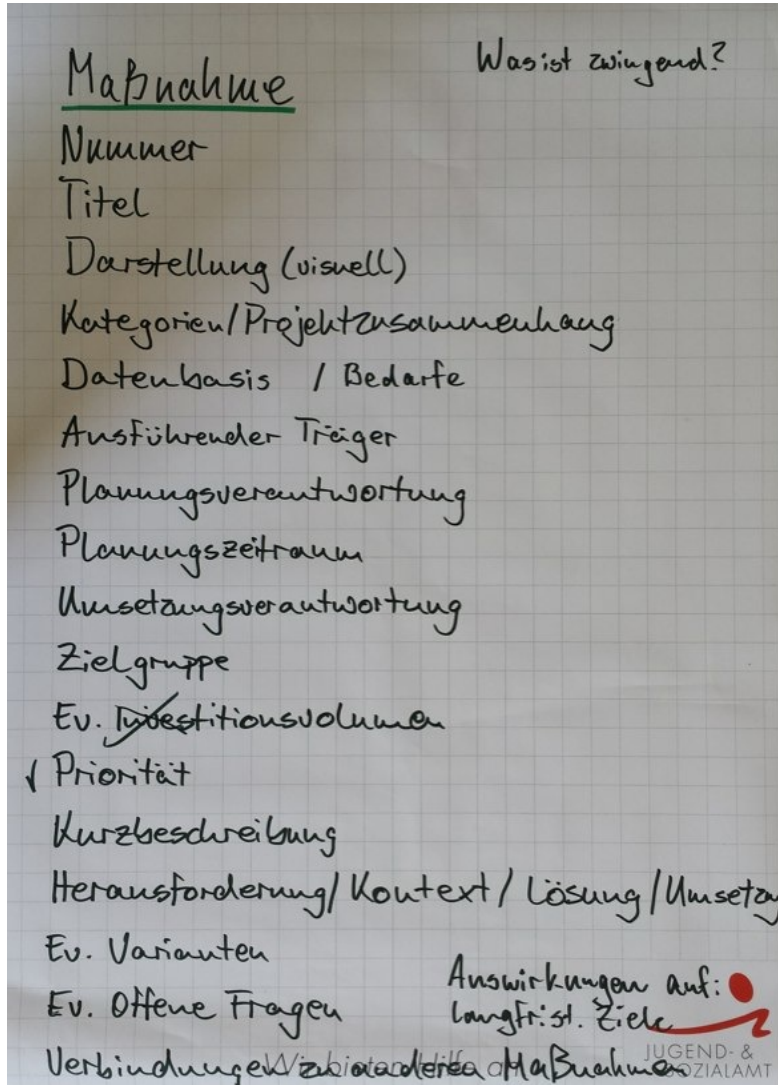 Was ist zwingend?
Maßnahme
Nummer
Titel
Darstellung (visuell)
Kategorien/Projektzusammenhang
Datenbasis / Bedarfe
Ausführender Träger
Planungsverantwortung
Planungszeitraum
Umsetzungsverantwortung
Zielgruppe
Ev. Investitionsvolumen
Priorität
Kurzbeschreibung
Herausforderung/Kontext/Lösung/Umsetzu
Ev. Varianten
Ev. Offene Fragen
Auswirkungen auf:
langfrist. Ziele
Verbindungen zu anderen Maßnahmen
Wir bieten Hilfe a
JUGEND- &
SOZIALAMT